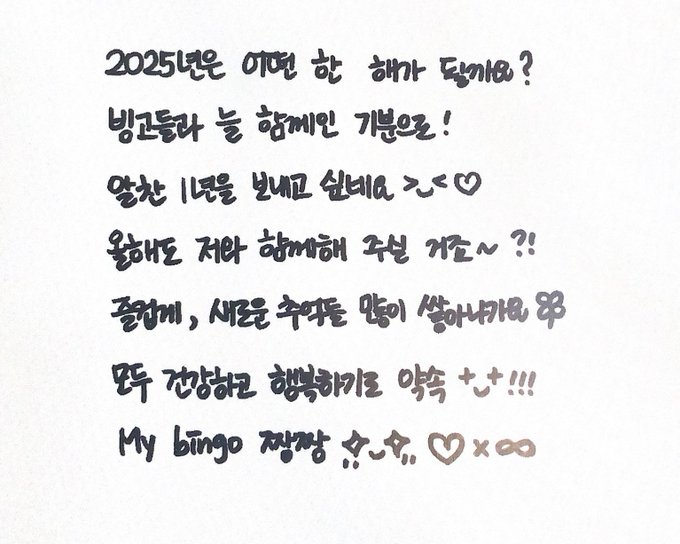 2025년은 어떤 한 해가 될까요?
빙고들과 늘 함께인 기분으로!
알찬 1년을 보내고 싶네요 >◡<♡
올해도 저와 함께해 주실 거죠~ ?!
즐겁게, 새로운 추억들 많이 쌓아나가요
모두 건강하고 행복하기로 약속 +◡+!!!
My bingo 짱짱 ✧◡✧ ♡×∞